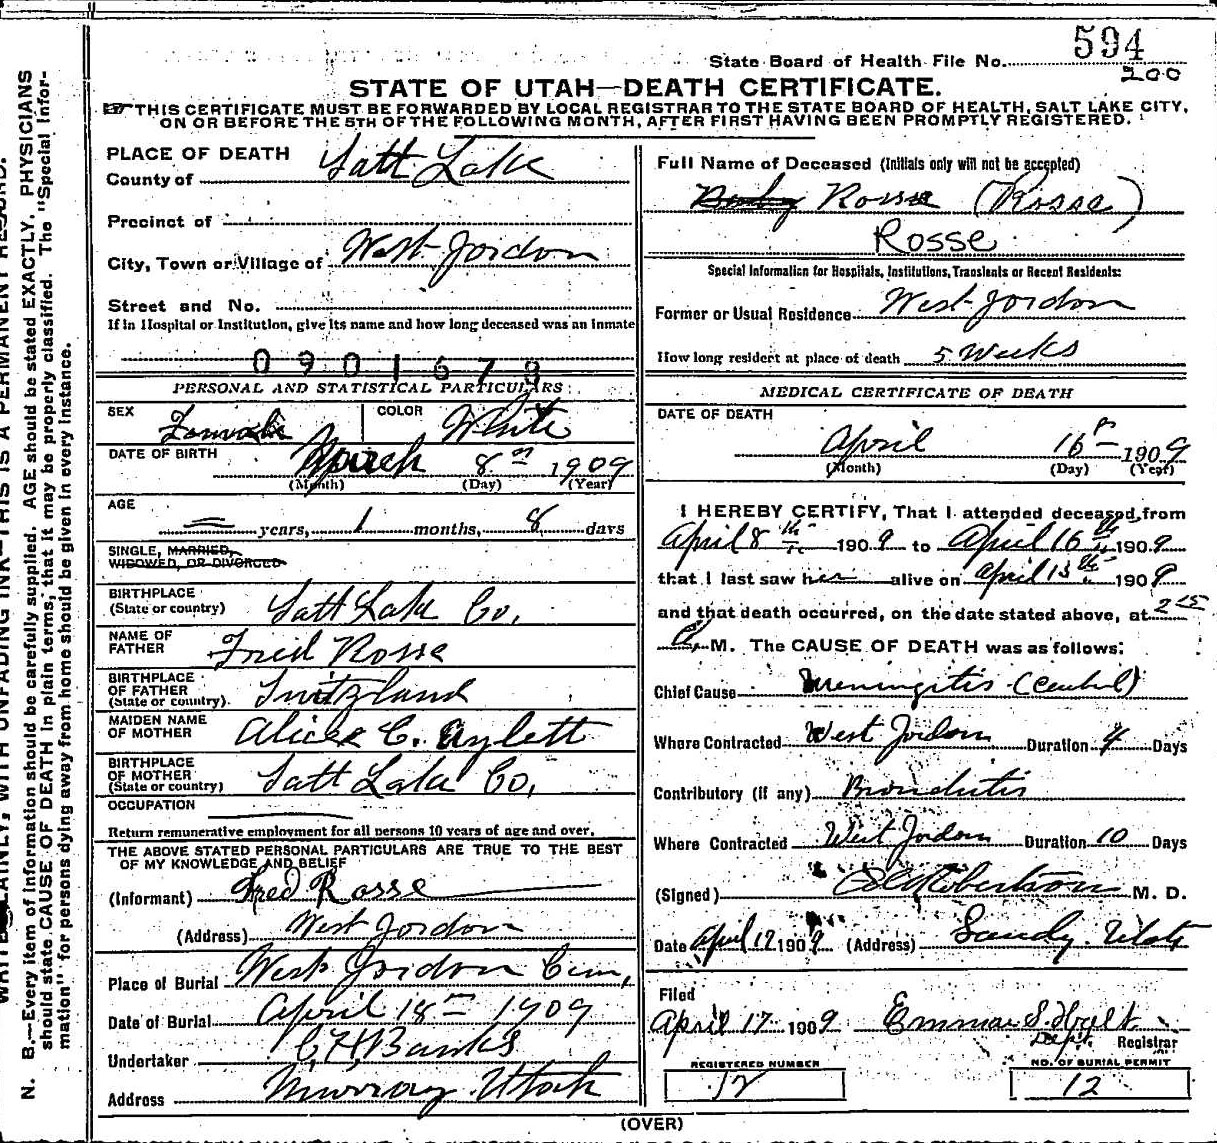 594
State Board of Health File No.
200
STATE OF UTAH—DEATH CERTIFICATE.
THIS CERTIFICATE MUST BE FORWARDED BY LOCAL REGISTRAR TO THE STATE BOARD OF HEALTH, SALT LAKE CITY,
ON OR BEFORE THE 5TH OF THE FOLLOWING MONTH, AFTER FIRST HAVING BEEN PROMPTLY REGISTERED.
PLACE OF DEATH
County of Salt Lake
Precinct of
City, Town or Village of West Jordon
Street and No.
If in Hospital or Institution, give its name and how long deceased was an Inmate
0901679
PERSONAL AND STATISTICAL PARTICULARS
SEX Female COLOR White
DATE OF BIRTH March 8th 1909
(Month) (Day) (Year)
AGE
— years, 1 months, 8 days
SINGLE, MARRIED,
WIDOWED, OR DIVORCED
BIRTHPLACE
(State or country) Salt Lake Co,
NAME OF
FATHER Fred Rosse
BIRTHPLACE
OF FATHER
(State or country) Switzland
MAIDEN NAME
OF MOTHER Alice C. Aylett
BIRTHPLACE
OF MOTHER
(State or country) Salt Lake Co,
OCCUPATION
Return remunerative employment for all persons 10 years of age and over.
THE ABOVE STATED PERSONAL PARTICULARS ARE TRUE TO THE BEST
OF MY KNOWLEDGE AND BELIEF
(Informant) Fred Rosse
(Address) West Jordon
Place of Burial West Jordon Cem,
Date of Burial April 18th 1909
Undertaker Banks
Address Murray Utah
Full Name of Deceased (Initials only will not be accepted)
Baby Rosse (Rosse)
Rosse
Special Information for Hospitals, Institutions, Transients or Recent Residents:
Former or Usual Residence West Jordon
How long resident at place of death 5 Weeks
MEDICAL CERTIFICATE OF DEATH
DATE OF DEATH
April 16th 1909
(Month) (Day) (Year)
I HEREBY CERTIFY, That I attended deceased from
April 8th 1909 to April 16th 1909
that I last saw her alive on April 15th 1909
and that death occurred, on the date stated above, at 2 15
A. M. The CAUSE OF DEATH was as follows:
Chief Cause Meningitis
Where Contracted West Jordon Duration 4 Days
Contributory (if any) Bronchitis
Where Contracted West Jordon Duration 10 Days
(Signed) Robertson M. D.
Date April 17 1909 (Address) Sandy. Utah
Filed
April 17 1909 Emma S. Holt
Dept. Registrar
REGISTERED NUMBER
12
NO. OF BURIAL PERMIT
12
(OVER)
N. B.—Every item of information should be carefully supplied. AGE should be stated EXACTLY. PHYSICIANS
should state CAUSE OF DEATH in plain terms, that it may be properly classified. The "Special Infor-
mation" for persons dying away from home should be given in every instance.
WRITE PLAINLY, WITH UNFADING INK—THIS IS A PERMANENT RECORD.